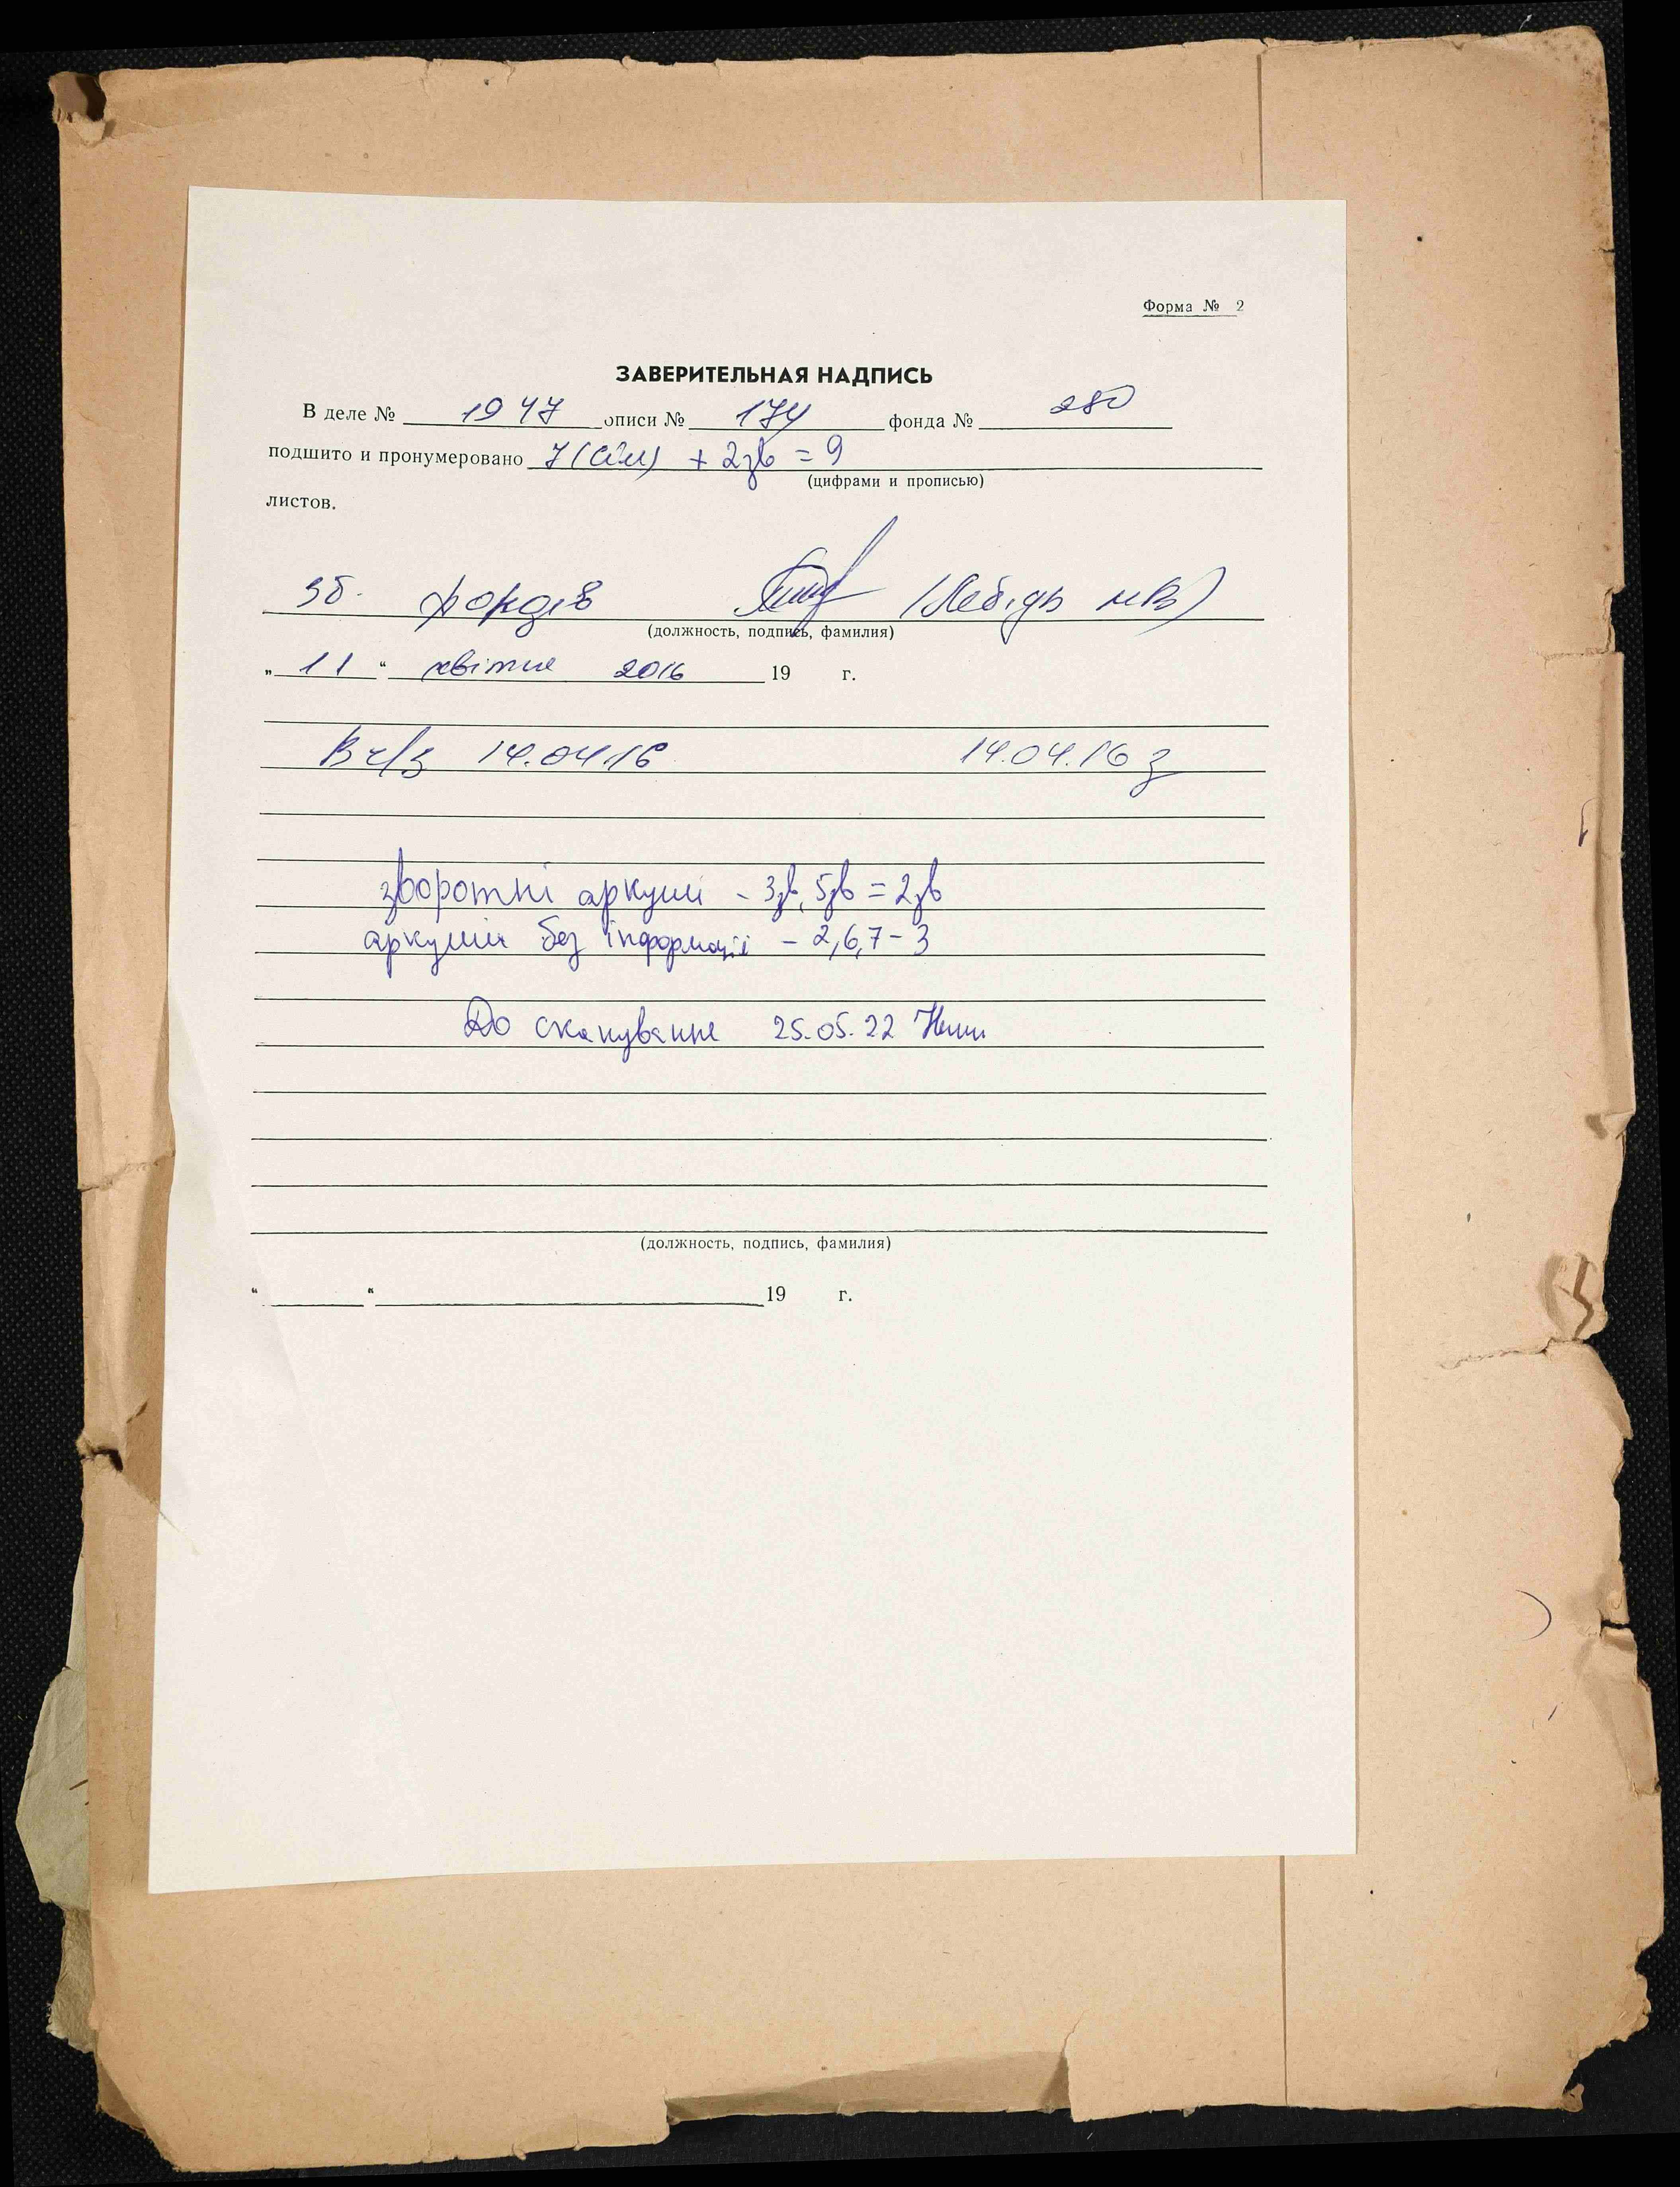 Форма № 2
ЗАВЕРИТЕЛЬНАЯ НАДПИСЬ
В деле № 1947 описи № 174 фонда № 280
подшито и пронумеровано 7 (сім) + 2зв = 9
(цифрами и прописью)
листов.
зб. фондів (Лебідь НВ)
(должность, подпись, фамилия)
„ 11 “ квітня 2016 19 г.
В ч/з 14.04.16 14.04.16 з
зворотні аркуші - 3зв, 5зв = 2зв
аркуші без інформації - 2,6,7 - 3
До сканування 25.05.22
(должность, подпись, фамилия)
“ “ 19 г.